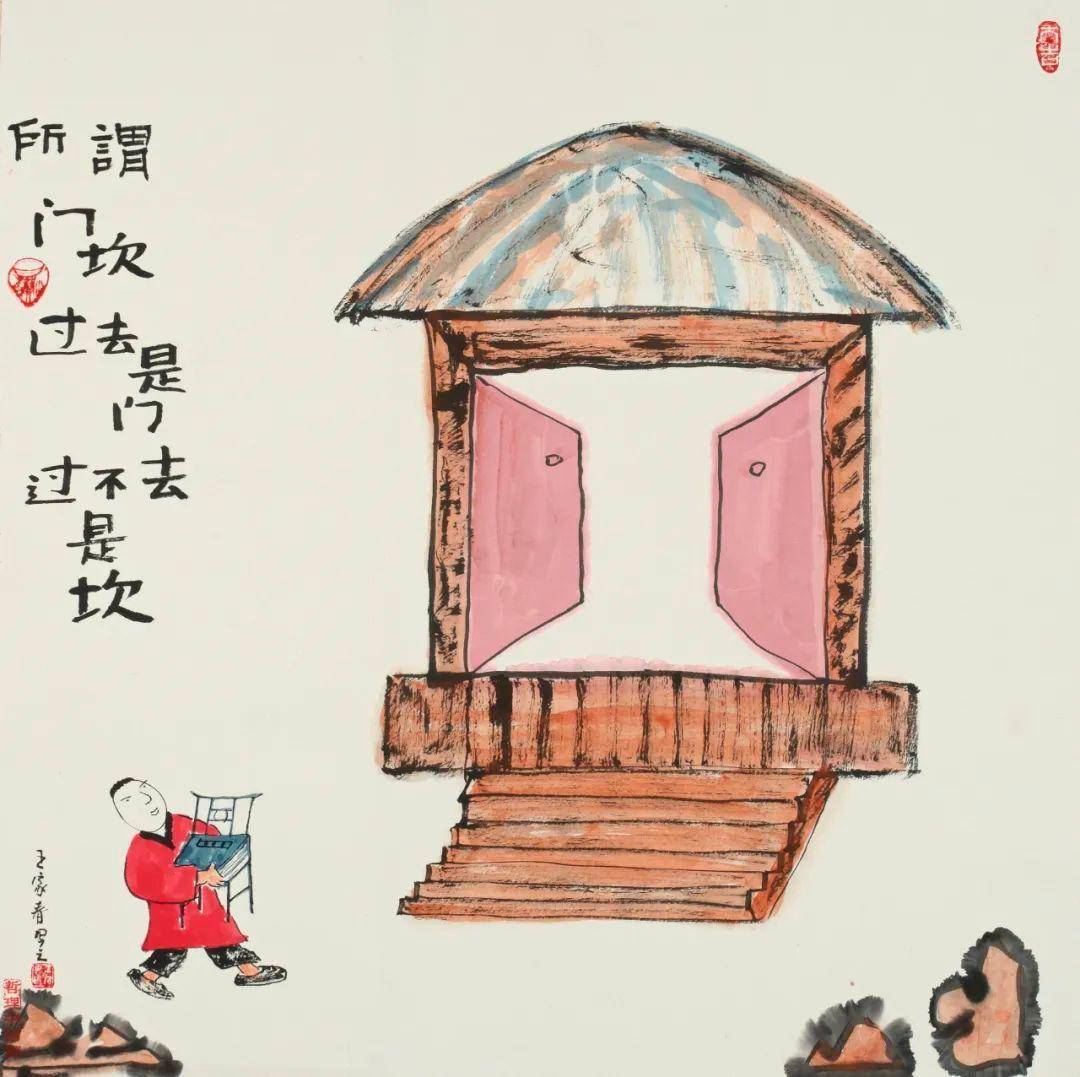 所謂
门坎
过去
是
门
过不去
是
坎
王家春
哲理